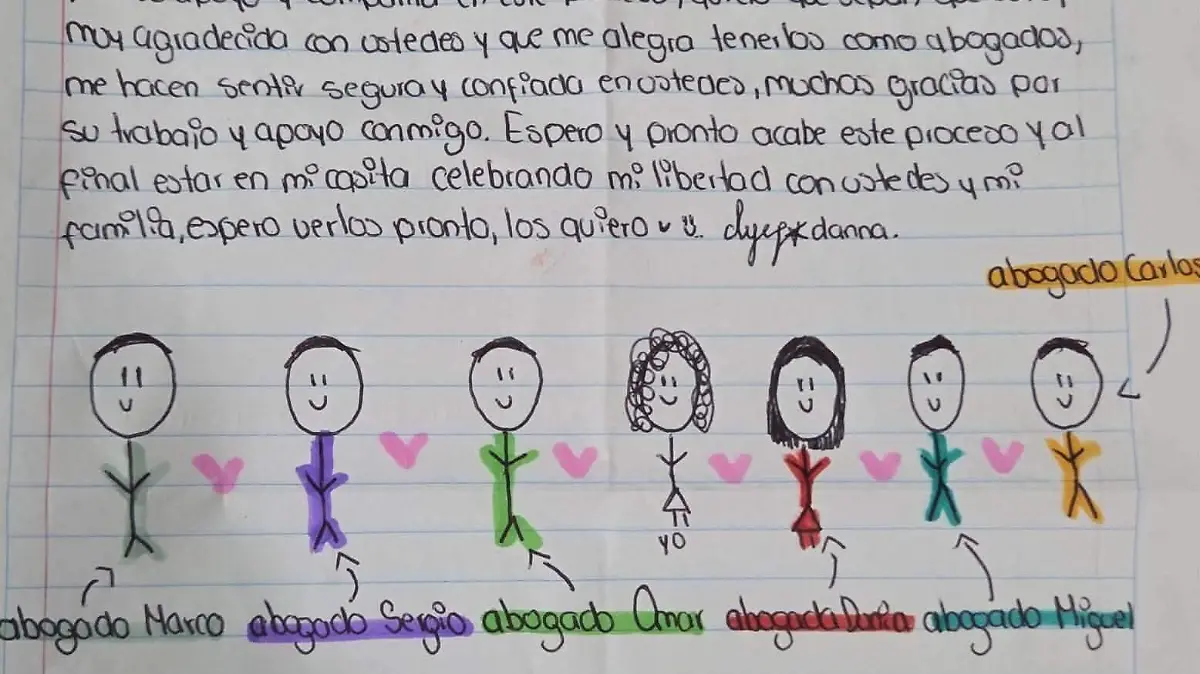 muy agradecida con ustedes y que me alegra tenerlos como abogados,
me hacen sentir segura y confiada en ustedes, muchas gracias por
su trabajo y apoyo conmigo. Espero y pronto acabe este proceso y al
final estar en mi casita celebrando mi libertad con ustedes y mi
familia, espero verlos pronto, los quiero danna.
abogado Carlos
YO
abogado Marco abogado Sergio abogado Omar abogada abogado Miguel